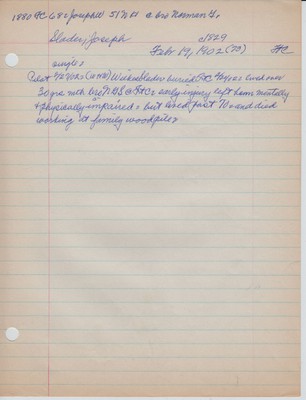 1880 FC 68 Joseph W 51 NH a bro Norman G.
Slader, Joseph c1829
Feb 19, 1902 (73) FC
single
past 1/2 yrs Widow Slader buried lived over
30 yrs with bro early injury left him mentally
& physically impaired but lived past 70 and died
working at family woodpile